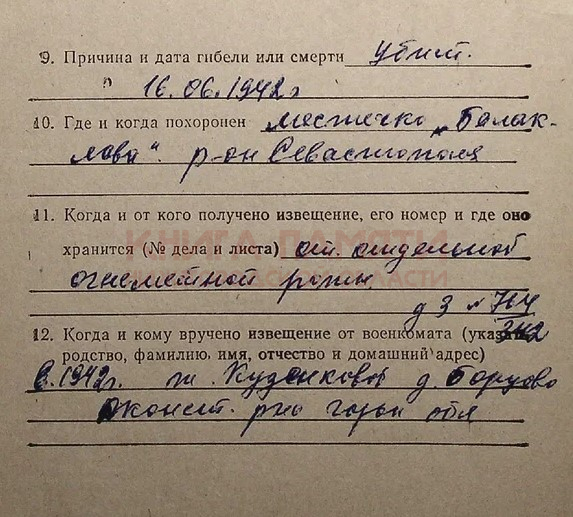 9. Причина и дата гибели или смерти убит.
16.06.1942 г
10. Где и когда похоронен местечко „Балак-
лава“ р-он Севастополя
11. Когда и от кого получено извещение, его номер и где оно
КНИГА ПАМЯТИ
хранится (№ дела и листа) от отдельной
ОБЛАСТИ
огнеметной роты
д 3 № 764
12. Когда и кому вручено извещение от военкомата (указать
342
родство, фамилию, имя, отчество и домашний адрес)
в 1942 г. ж. Куденковой д.
р-на горьк обл